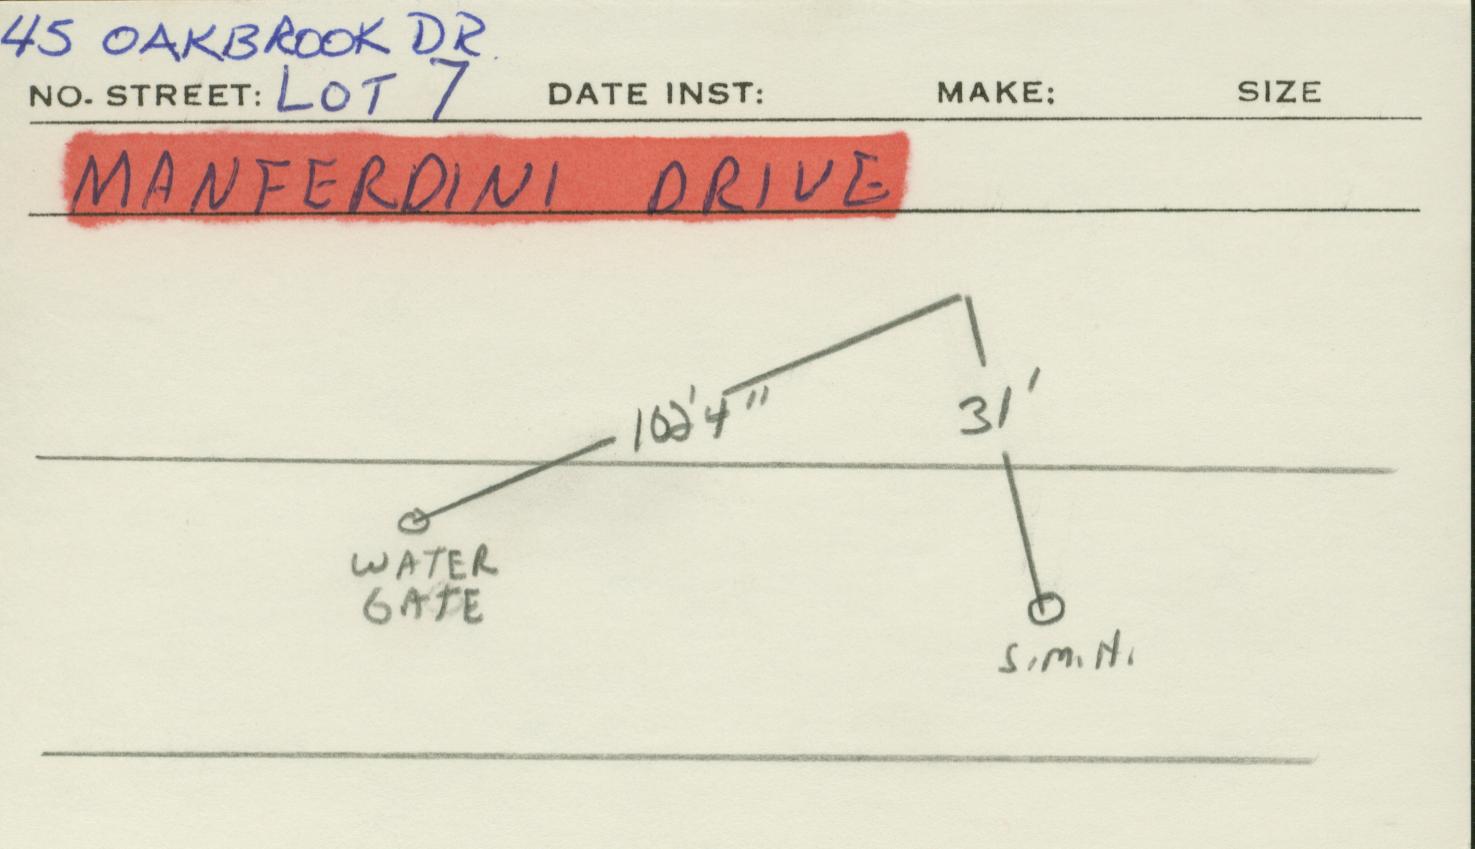 45 OAKBROOK DR.
NO. STREET: LOT 7 DATE INST: MAKE: SIZE
MANFERDINI DRIVE
102'4" 31'
WATER
GATE
S.M.H.